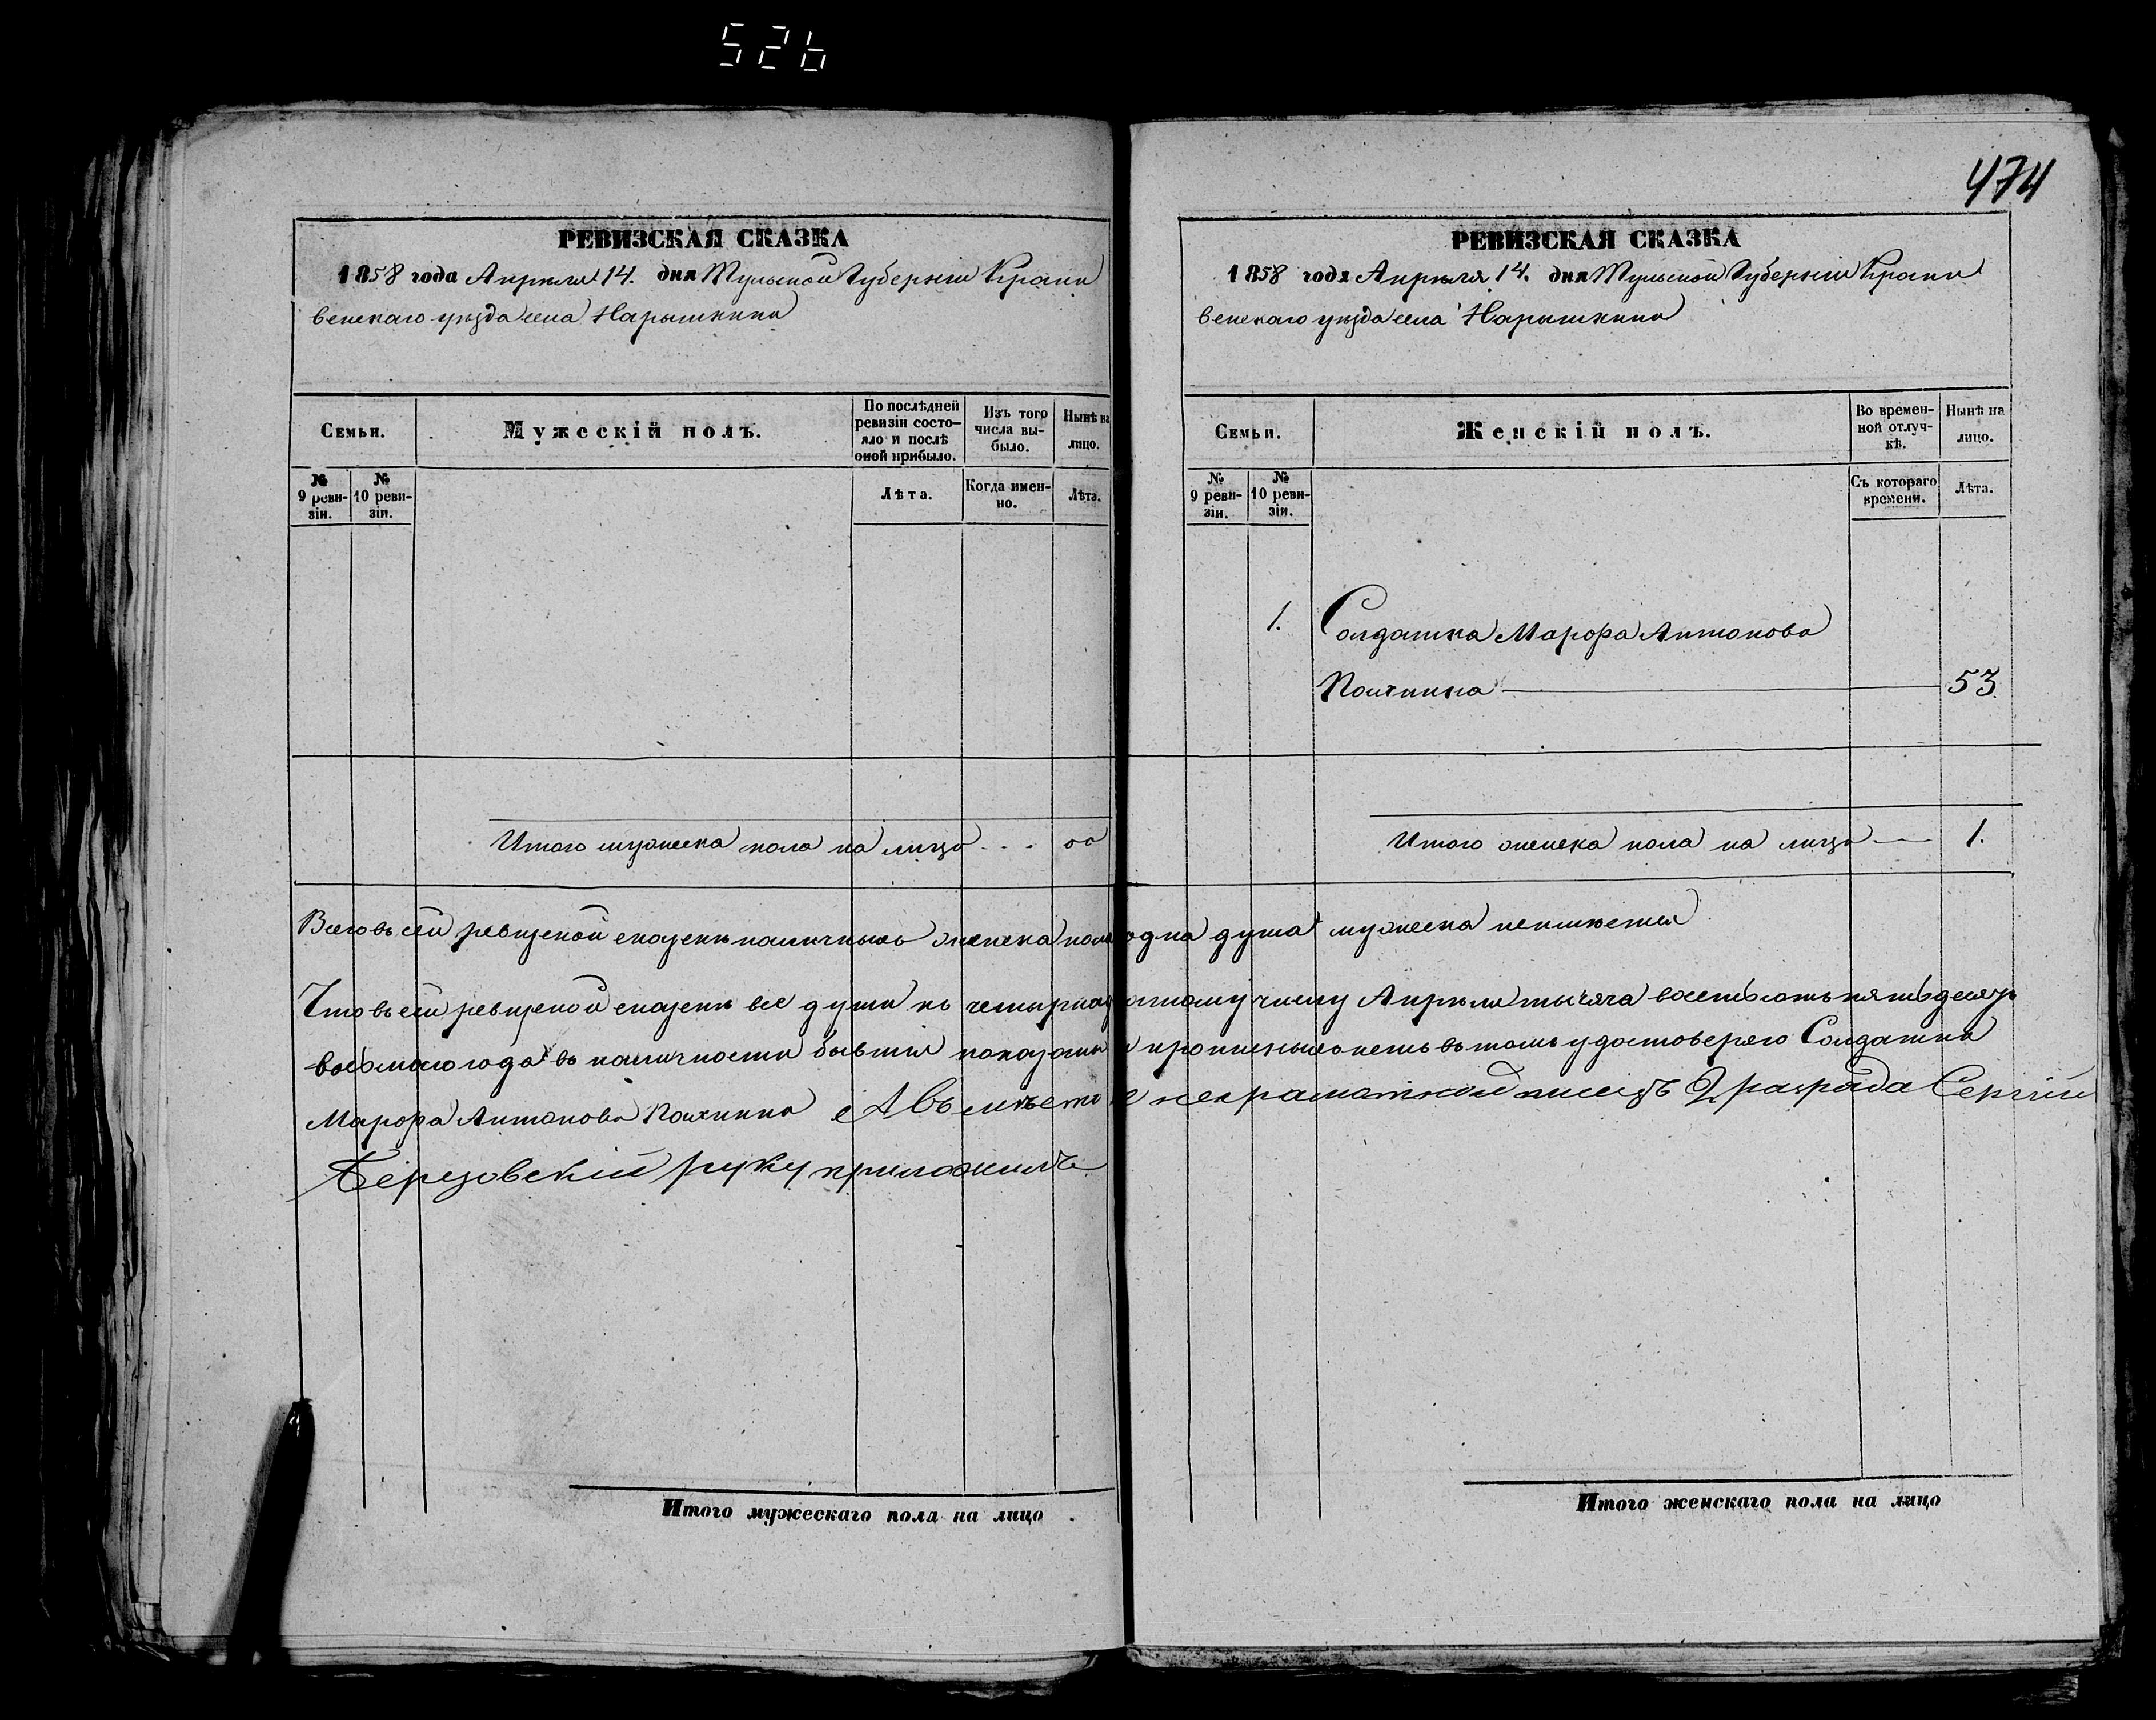 526
474
РЕВИЗСКАЯ СКАЗКА
1858 года Апреля 14. дня Тульской Губерніи Крапи
венскаго уезда села Нарышкина
Семьи.
Мужескій полъ.
По послѣдней ревизіи состо-
яло и послѣ
оной прибыло.
Изъ того
числа вы-
было.
Нынѣ на
лицо.
№
9 реви-
зіи.
№
10 реви-
зіи.
Лѣта.
Когда имен-
но.
Лѣта.
Итого мужеска пола на лицо . . . 00
РЕВИЗСКАЯ СКАЗКА
1858 года Апреля 14. дня Тульской Губерніи Крапи
венскаго уезда села Нарышкина
Семьи.
Женскій полъ.
Во времен-
ной отлуч-
кѣ.
Нынѣ на
лицо.
№
9 реви-
зіи.
№
10 реви-
зіи.
Съ котораго
времени.
Лѣта.
1. Солдатка Марфа Антонова
53.
Итого женска пола на лицо 1.
Всего въ сей ревизской сказке наличныхъ женска пола одна душа мужеска неимеется
Что въ сей ревизской сказке все души къ четырнадцатому числу Апреля тысяча восемьсотъ пятьдесятъ
восьмого года въ наличности бывшия показаны и прописныхъ нетъ въ томъ удостоверяю Солдатка
Марфа Антонова А Въ место е неграматной писецъ 2 разряда Сергій
Березовскій руку приложилъ
Итого мужескаго пола на лицо .
Итого женскаго пола на лицо